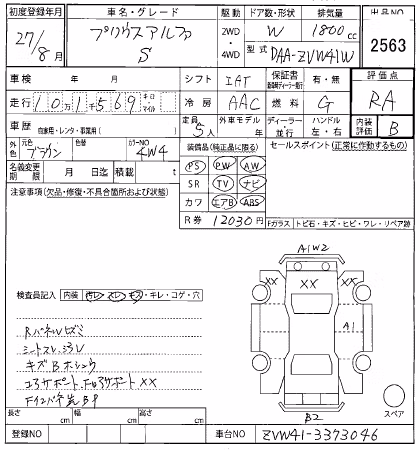 初度登録年月 車名・グレード 駆動 ドア数・形状 排気量 出品NO
27/8月 プリウスアルファ 2WD W 1800cc 2563
S 4WD 型式 DAA-ZVW41W
車検 年 月 シフト IAT 保証書 有・無 評価点
走行 101569 キロ マイル 冷房 AAC 燃料 G RA
車歴 自家用・レンタ・事業用( ) 定員 5人 外車モデル 年 ディーラー 並行 ハンドル 左・右 内装評価 B
外色 元色 ブラウン 色替 カラーNO 4W4 装備品(純正品に限る) セールスポイント(正常に作動するもの)
名義変更期限 月 日迄 積載 t PS PW AW
注意事項(欠品・修復・不具合箇所および状態) SR TV ナビ
カワ エアB ABS
R券 12030円 Fガラス トビ石・キズ・ヒビ・ワレ・リペア跡
A1 W2
検査員記入 内装 汚レ・スレ・キズ・キレ・コゲ・穴
XX XX XX
A1
Rパネルヒズミ
シートスレ、シワ
キズB
コアサポート、Fロアサポート XX
Fインパネ
B2 スペア
長さ cm 幅 cm 高さ cm
登録NO 車台NO ZVW41-3373046